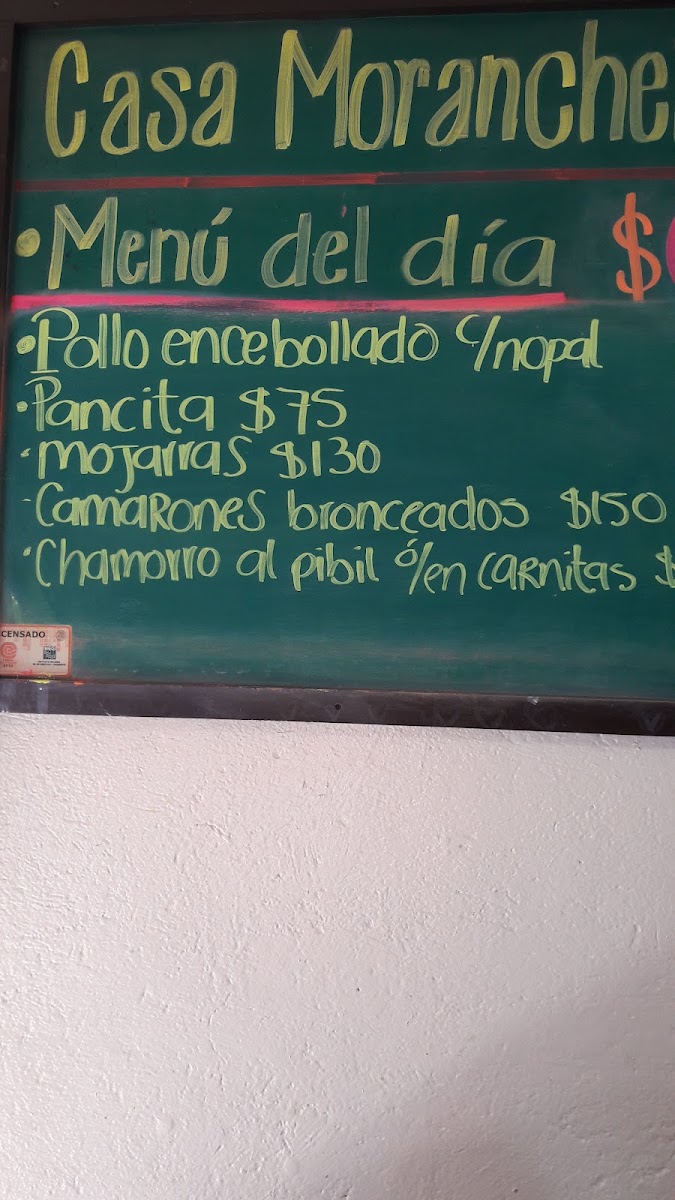 Casa Moranche
• Menú del día $
• Pollo encebollado c/nopal
• Pancita $75
• mojarras $130
- Camarones bronceados $150
• Chamorro al pibil ó/en carnitas $
CENSADO